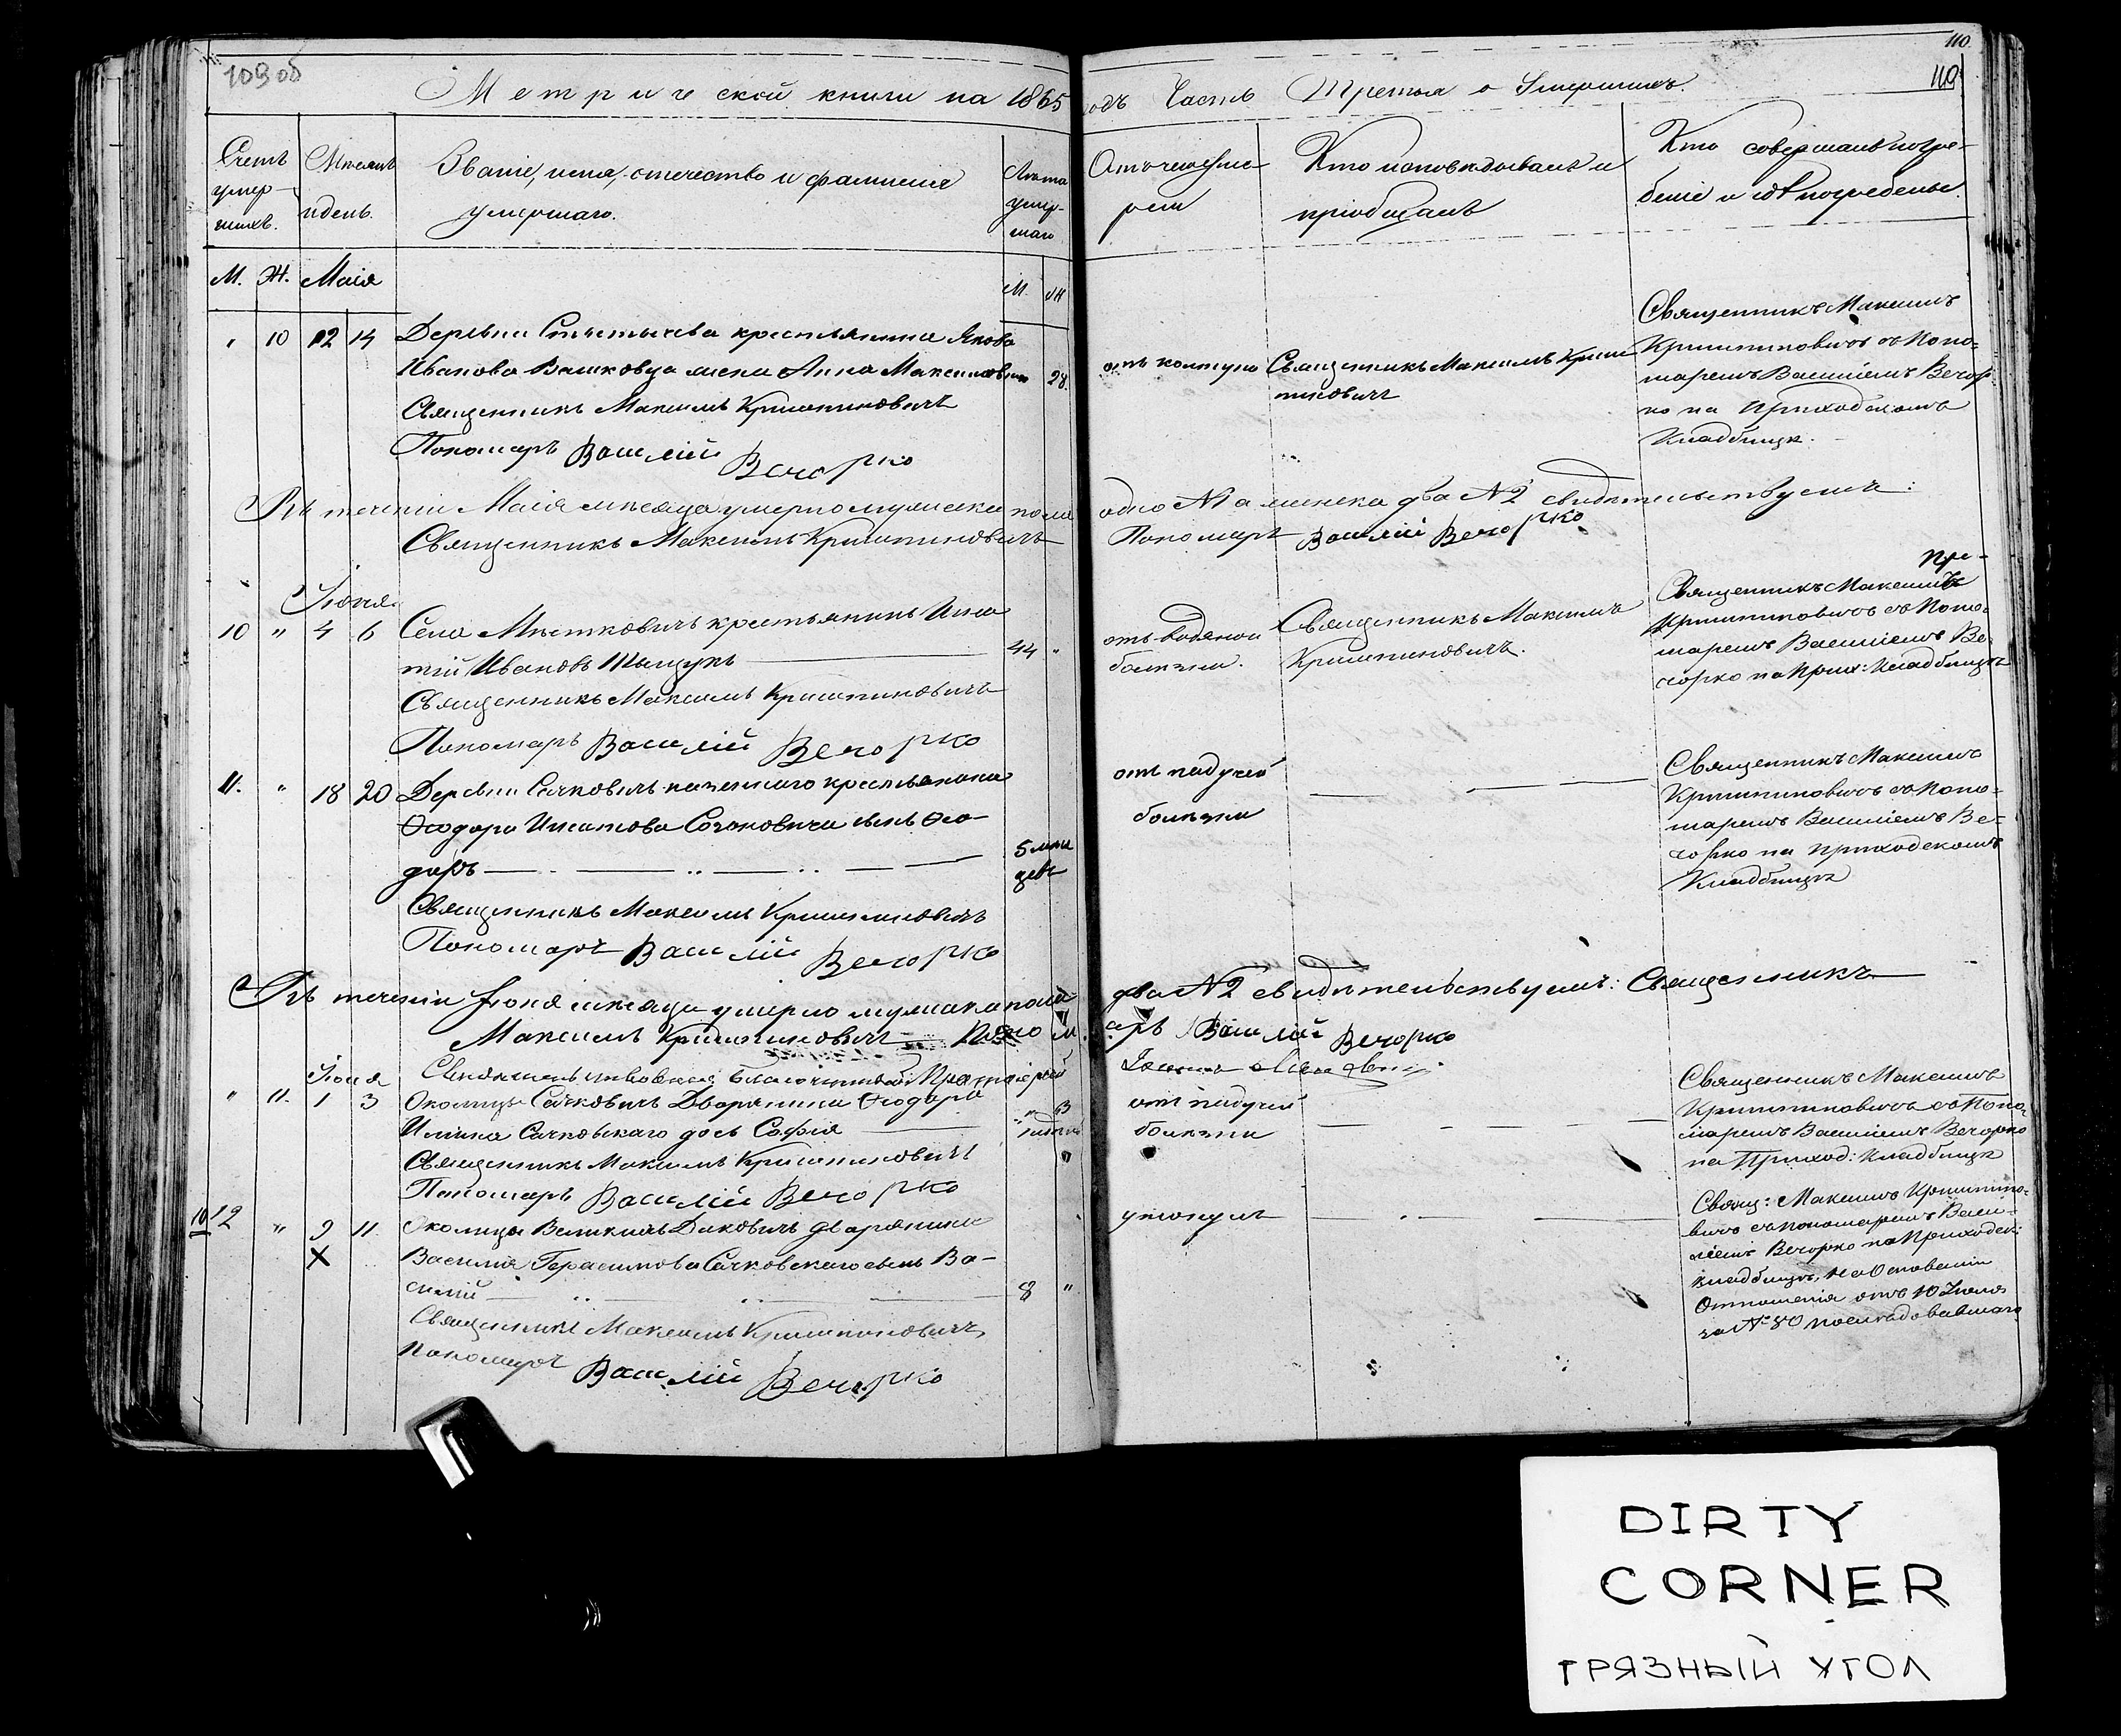 109 об
110
110
Метрической книги на 1865
одъ Часть Третья о Умершихъ.
Счетъ умер-
шихъ.
Месяцъ
и день.
Званіе, имя, отчество и фамилия
умершаго.
Лета
умер-
шаго
Отъ чего уме-
рли
Кто исповѣдывалъ и
пріобщалъ
Кто совершалъ погре-
беніе и где погребены.
М. Ж. Маія
М. Ж
" 10 12 14 Деревни крестьянина Якова
Иванова Вашковца жена Анна Максимовна 28.
Священникъ Максимъ Криштиновичъ
Пономаръ Василій Вечорко
отъ колтуна
Священникъ Максимъ Кришти-
новичъ
Священникъ Максимъ
Криштиновичъ съ Поно-
маремъ Василіемъ Вечор-
ко на Приходскомъ
Кладбищѣ.
Въ теченіи Маія мѣсяца умерло мужеска пола
одно №1 а женска два №2 свидѣтельствуемъ:
Священникъ Максимъ Криштиновичъ
Пономаръ Василій Вечорко
Іюня
10 " 4 6 Села Мѣстковичъ крестьянинъ Игна-
тій Ивановъ 44 "
Священникъ Максимъ Криштиновичъ
Пономаръ Василій Вечорко
отъ водяной
болѣзни.
Священникъ Максимъ
Криштиновичъ.
Священникъ Максимъ
Криштиновичъ съ Поно-
маремъ Василіемъ Ве-
чорко на Прих: Кладбищѣ
11. " 18 20 Деревни Сачковичъ казеннаго крестьянина
Ѳеодора Игнатова Сачковича сынъ Ѳео-
доръ
5 мѣся
цевъ
Священникъ Максимъ Криштиновичъ
Пономаръ Василій Вечорко
отъ падучей
болѣзни
Священникъ Максимъ
Криштиновичъ съ Поно-
маремъ Василіемъ Ве-
чорко на приходскомъ
Кладбищѣ
Въ теченіи Іюня мѣсяца умерло мужска пола
два №2 свидѣтельствуемъ: Священникъ
Максимъ Криштиновичъ Поном
аръ Василій Вечорко
Благочинный Протоіерей
Іюля
" 11. 1 3 Околицы Сачковичъ Дворянина Ѳеодора
Ильина Сачковскаго дочь Софія
Священникъ Максимъ Криштиновичъ
Пономаръ Василій Вечорко
отъ падучей
болѣзни
Священникъ Максимъ
Криштиновичъ съ Поно-
маремъ Василіемъ Вечорко
на Приход: Кладбищѣ
10 12 " 9 11 Околицы Великихъ Диковичъ дворянина
X
Василія Герасимова Сачковскаго сынъ Ва-
силій 8 "
Священникъ Максимъ Криштиновичъ
Пономаръ Василій Вечорко
утонулъ
Свящ: Максимъ Криштино-
вичъ съ пономаремъ Васи-
ліемъ Вечорко на Приходск:
кладбищѣ, на Основаніи
Отношенія отъ 10 Іюля
за № 80 послѣдовавшаго
DIRTY
CORNER
ГРЯЗНЫЙ УГОЛ